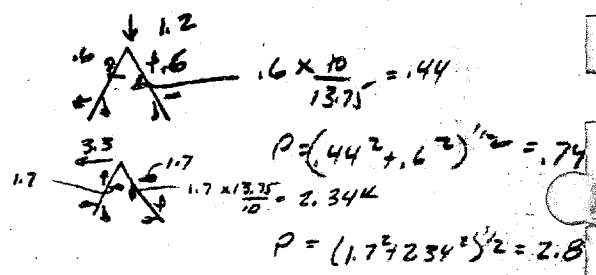 1.2
.6 .6 .6 x 10/13.75 = .44
P = (.44² + .6²)^1/2 = .74
3.3
1.7 1.7 1.7 x 13.75/10 = 2.34K
P = (1.7² + 234²)^1/2 = 2.8